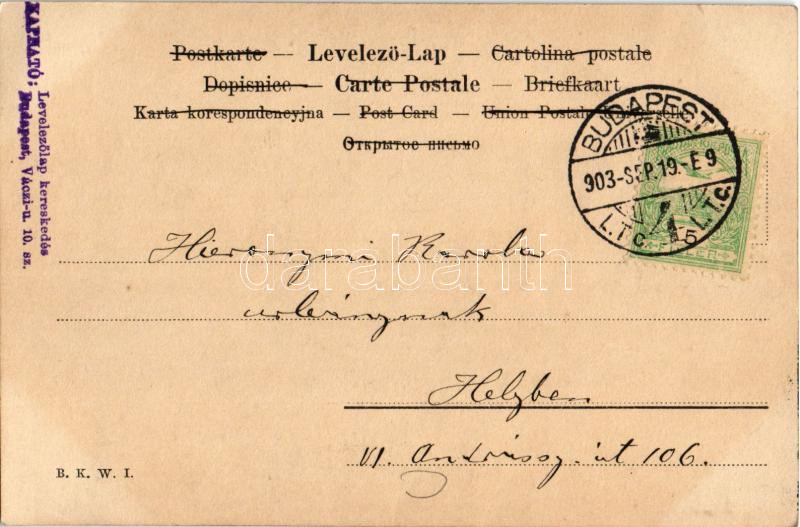 Postkarte — Levelező-Lap — Cartolina postale
Dopisnice — Carte Postale — Briefkaart
Karta korespondencyjna — Post Card — Union Postale
Открытое письмо
KAPHATÓ;
Levelezőlap kereskedés
Budapest, Váczi-u. 10. sz.
BUDAPEST
903-SEP.19.-E 9
I.T.C. 5 I.T.C.
darabanth
Hieronymi Karola
urleánynak
Helyben
VI. Andrássy út 106.
B. K. W. I.